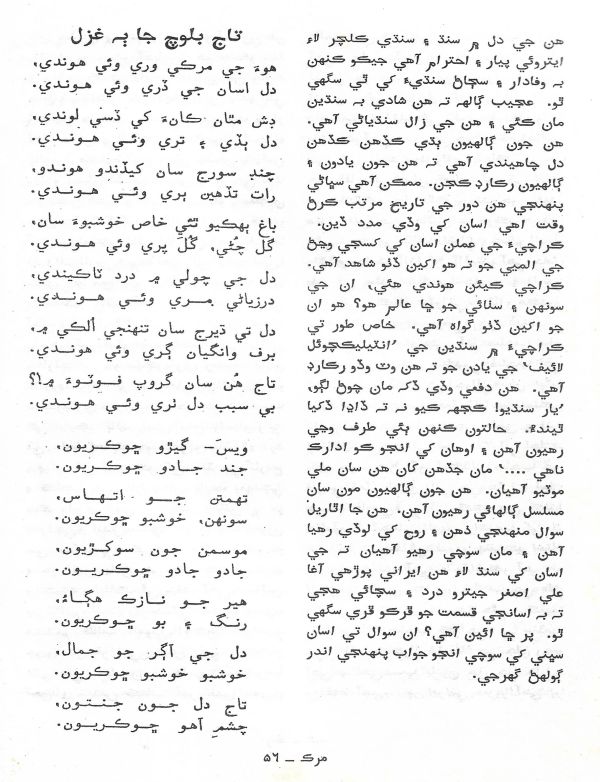 هن جي دل ۾ سنڌ ۽ سنڌي ڪلچر لاءِ
ايتروئي پيار ۽ احترام آهي جيڪو ڪنهن
به وفادار ۽ سڄاڻ سنڌيءَ کي ٿي سگهي
ٿو. عجيب ڳالهه ته هن شادي به سنڌين
مان ڪئي ۽ هن جي زال سنڌياڻي آهي.
هن جون ڳالهيون ٻڌي ڪڏهن ڪڏهن
دل چاهيندي آهي ته هن جون يادون ۽
ڳالهيون رڪارڊ ڪجن. ممڪن آهي سڀاڻي
پنهنجي هن دور جي تاريخ مرتب ڪرڻ
وقت اهي اسان کي وڏي مدد ڏين.
ڪراچيءَ جي عملن اسان کي کسجي وڃڻ
جي الميي جو ته هو اکين ڏٺو شاهد آهي.
ڪراچي ڪيئن هوندي هئي، ان جي
سونهن ۽ سٺائي جو ڇا عالم هو؟ هو ان
جو اکين ڏٺو گواه آهي. خاص طور تي
ڪراچيءَ ۾ سنڌين جي ’انٽيليڪچوئل
لائيف‘ جي يادن جو ته هن وٽ وڏو رڪارڊ
آهي. هن دفعي وڏي ڏک مان چوڻ لڳو،
’يار سنڌيو! ڪجهه ڪيو نه ته ڏاڍا ڏکيا
ٿيندءُ. حالتون ڪنهن ٻئي طرف وڃي
رهيون آهن ۽ اوهان کي انجو ڪو ادارڪ
ناهي ....‘ مان جڏهن کان هن سان ملي
موٽيو آهيان. هن جون ڳالهيون مون سان
مسلسل ڳالهائي رهيون آهن. هن جا اٿاريل
سوال منهنجي ذهن ۽ روح کي لوڏي رهيا
آهن ۽ مان سوچي رهيو آهيان ته جي
اسان کي سنڌ لاءِ هن ايراني پوڙهي آغا
علي اصغر جيترو درد ۽ سچائي هجي
ته به اسانجي قسمت جو ڦرڪو ڦري سگهي
ٿو. پر ڇا ائين آهي؟ ان سوال تي اسان
سڀني کي سوچي انجو جواب پنهنجي اندر
ڳولهڻ گهرجي.
تاج بلوچ جا ٻه غزل
هوءَ جي مرڪي وري وئي هوندي،
دل اسان جي ڏري وئي هوندي.
ڊش مٿان ڪانءَ کي ڏسي لوندي،
دل ٻڏي ۽ تري وئي هوندي.
چنڊ سورج سان کيڏندو هوندو،
رات تڏهين ٻري وئي هوندي.
باغ ٻهڪيو ٿئي خاص خوشبوءَ سان،
گل چُڻي، گُلَ پري وئي هوندي.
دل جي چولي ۾ درد ٽاڪيندي،
درزياڻي مري وئي هوندي.
دل تي ڌيرج سان تنهنجي اُلڪي ۾،
برف وانگيان ڳري وئي هوندي.
تاج هُن سان گروپ فوٽوءَ ۾!؟
بي سبب دل ٺري وئي هوندي.
ويسَ- گيڙو ڇوڪريون،
جند جادو ڇوڪريون.
تهمتن جو اتهاس،
سونهن، خوشبو ڇوڪريون.
موسمن جون سوکڙيون،
جادو جادو ڇوڪريون.
هير جو نازڪ هڳاءُ،
رنگ ۽ بو ڇوڪريون.
دل جي آڳر جو جمال،
خوشبو خوشبو ڇوڪريون.
تاج دل جون جنتون،
چشمِ آهو ڇوڪريون.
مرڪ – ۵۶